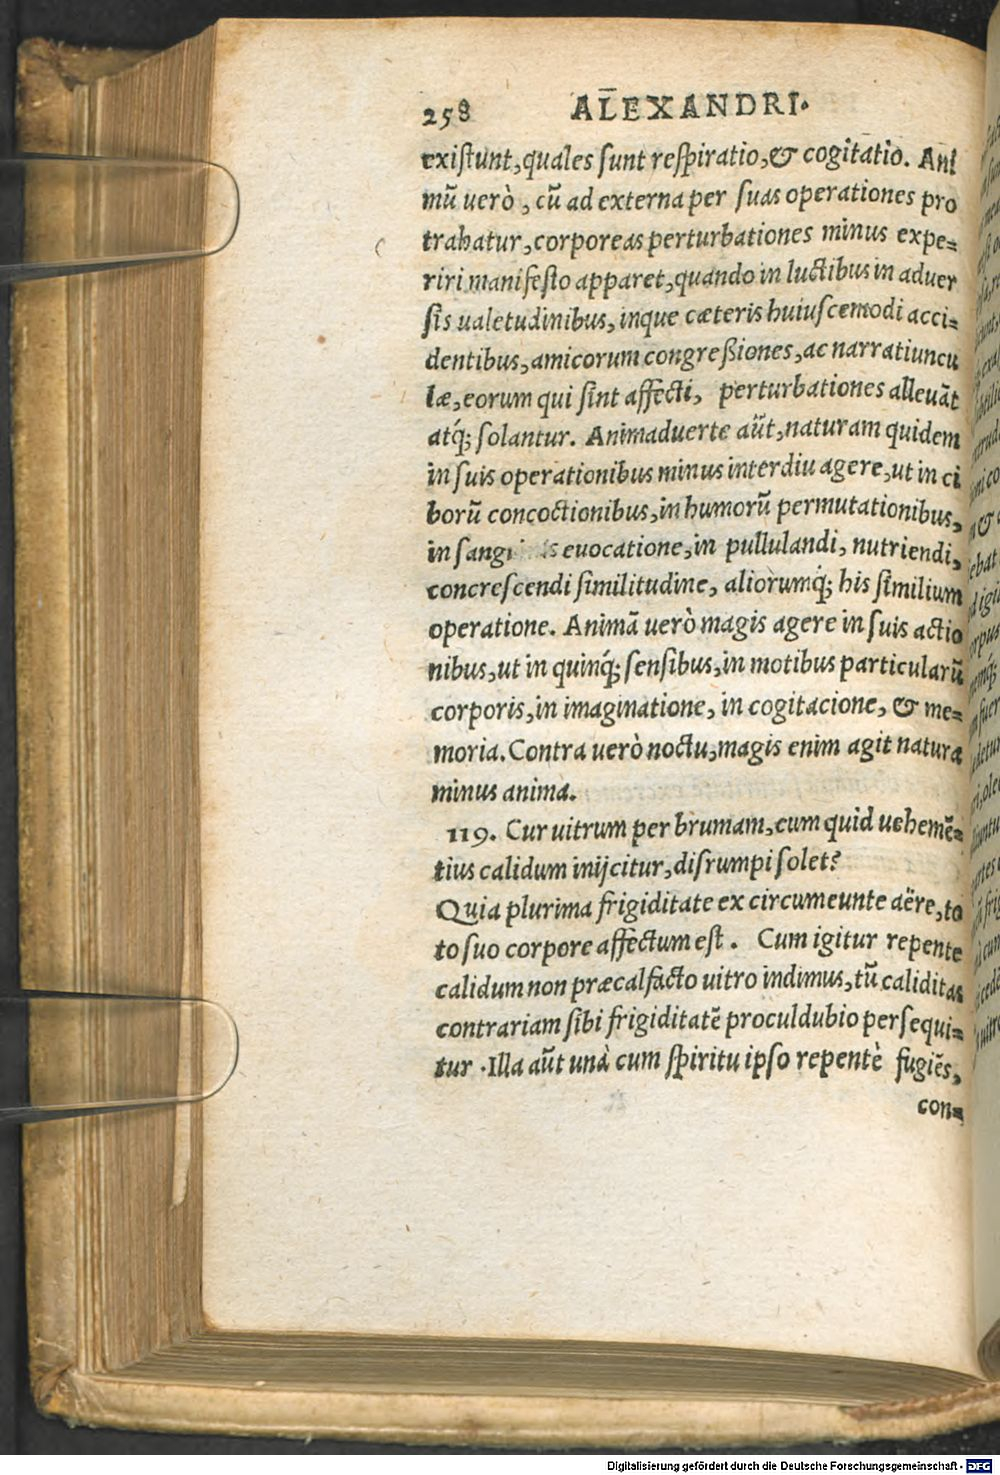 258 ALEXANDRI.
existunt, quales sunt respiratio, & cogitatio. Ani
mũ uerò, cũ ad externa per suas operationes pro
trahatur, corporeas perturbationes minus expe=
riri manifesto apparet, quando in luctibus in aduer
sis ualetudinibus, inque cæteris huiuscemodi acci=
dentibus, amicorum congreßiones, ac narratiuncu
læ, eorum qui sint affecti, perturbationes alleuãt
atq́; solantur. Animaduerte aũt, naturam quidem
in suis operationibus minus interdiu agere, ut in ci
borũ concoctionibus, in humorũ permutationibus,
in euocatione, in pullulandi, nutriendi,
concrescendi similitudine, aliorumq́; his similium
operatione. Animã uerò magis agere in suis actio
nibus, ut in quinq́; sensibus, in motibus particularũ
corporis, in imaginatione, in cogitacione, & me=
moria. Contra uerò noctu, magis enim agit natura
minus anima.
119. Cur uitrum per brumam, cum quid uehemẽ=
tius calidum inijcitur, disrumpi solet?
Quia plurima frigiditate ex circumeunte aëre, to
to suo corpore affectum est. Cum igitur repente
calidum non præcalfacto uitro indimus, tũ caliditas
contrariam sibi frigiditatẽ proculdubio persequi=
tur. Illa aũt unà cum spiritu ipso repentè fugiẽs,
con=
Digitalisierung gefördert durch die Deutsche Forschungsgemeinschaft - DFG